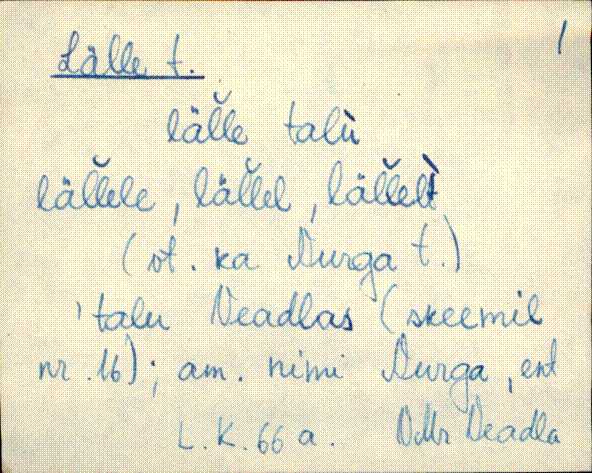 1
Lälle t.
läl̆le talù
läl̆lele, läl̆lel, läl̆lelt̀
(vt. ka Nurga t.)
'talu Neadlas (skeemil
nr. 16); am. nimi Nurga, ent
L.K. 66 a. VMr Neadla